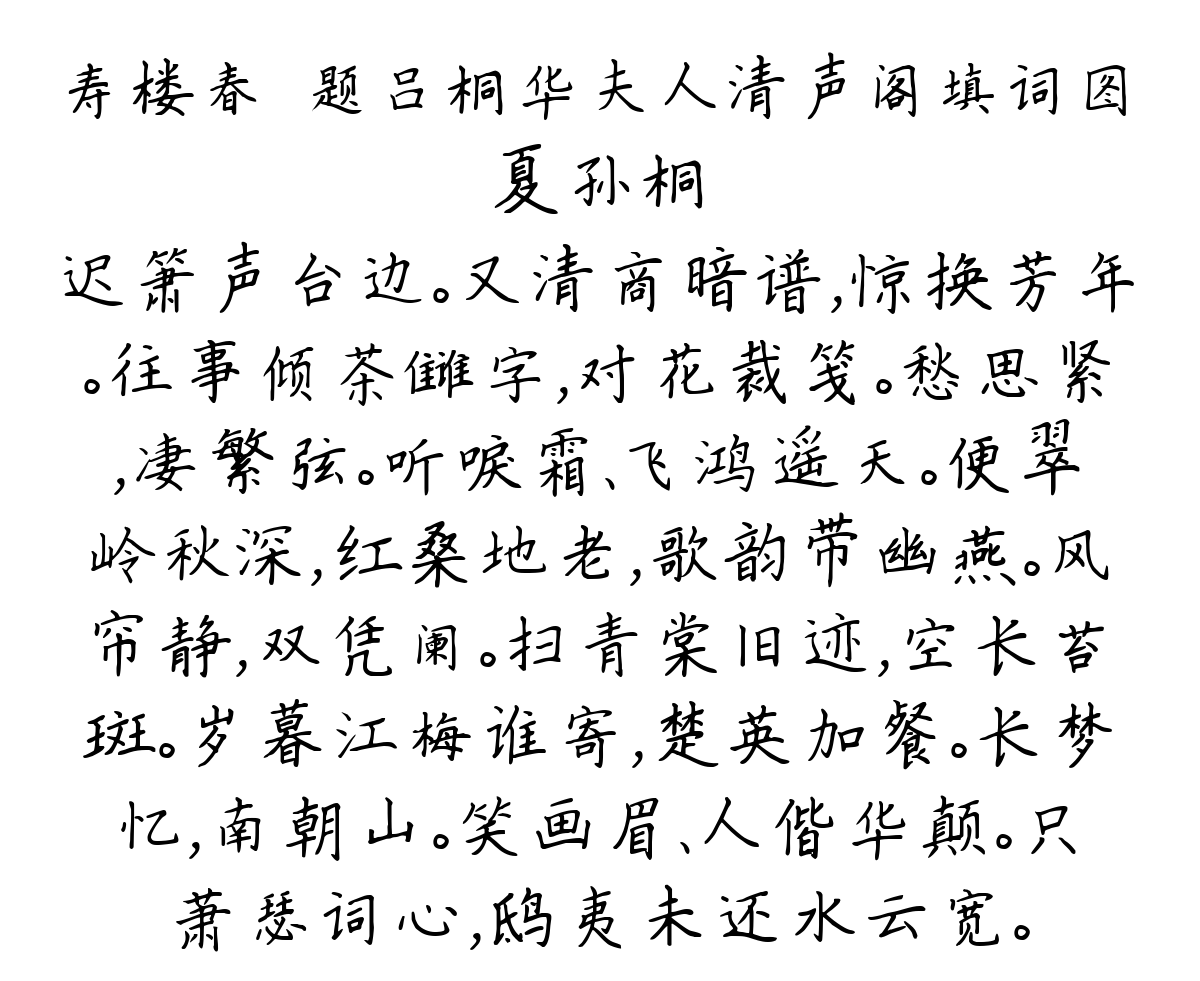 寿楼春 题吕桐华夫人清声阁填词图
夏孙桐
迟箫声台边。又清商暗谱,惊换芳年
。往事倾茶雠字,对花裁笺。愁思紧
,凄繁弦。听唳霜、飞鸿遥天。便翠
岭秋深,红桑地老,歌韵带幽燕。风
帘静,双凭阑。扫青棠旧迹,空长苔
斑。岁暮江梅谁寄,楚英加餐。长梦
忆,南朝山。笑画眉、人偕华颠。只
萧瑟词心,鸱夷未还水云宽。